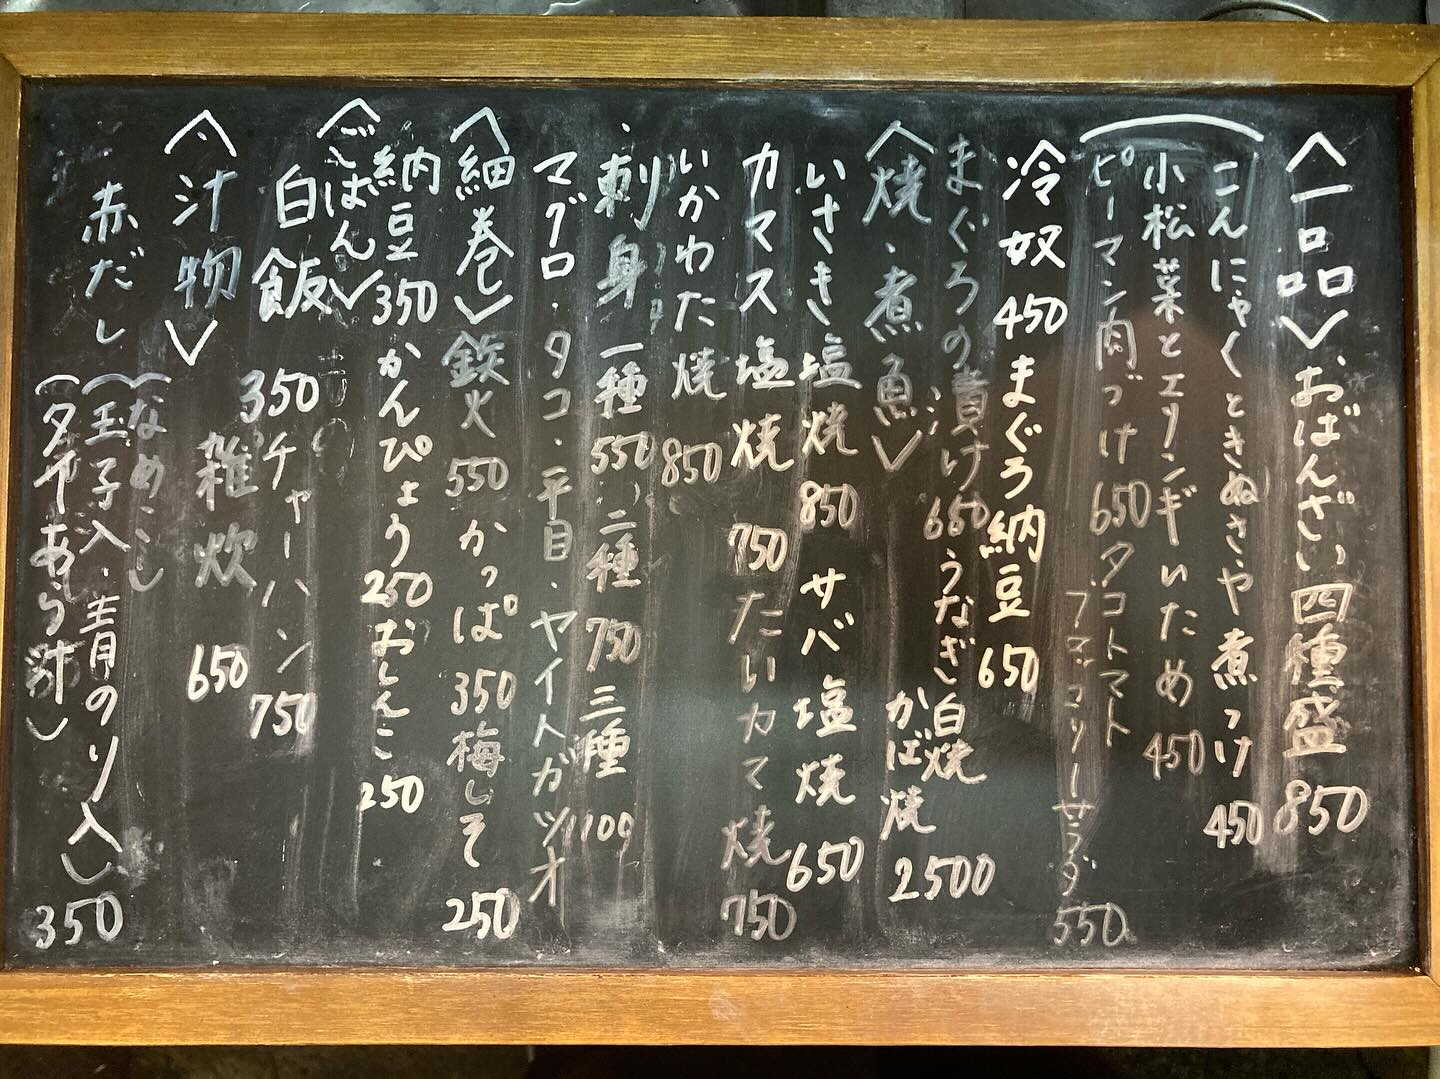 〈一品〉おばんざい四種盛 850
こんにゃくときぬさや煮つけ 450
小松菜とエリンギいため 450
ピーマン肉づけ 650 タコトマト
ブロッコリーサラダ 550
冷奴 450 まぐろ納豆 650
まぐろの漬け 650 うなぎ白焼
かば焼 2500
〈焼・煮魚〉
いさき塩焼 850 サバ塩焼 650
カマス塩焼 750 たいカマ焼 750
いかわた焼 850
・刺身 一種 550 二種 750 三種 1100
マグロ・タコ・平目・ヤイトガツオ
〈細巻〉鉄火 550 かっぱ 350 梅しそ 250
納豆 350 かんぴょう 250 おしんこ 250
〈ごはん〉
白飯 350 チャーハン 750
雑炊 650
〈汁物〉
赤だし
(なめこ
(玉子入・青のり入) 350
(タイあら汁)